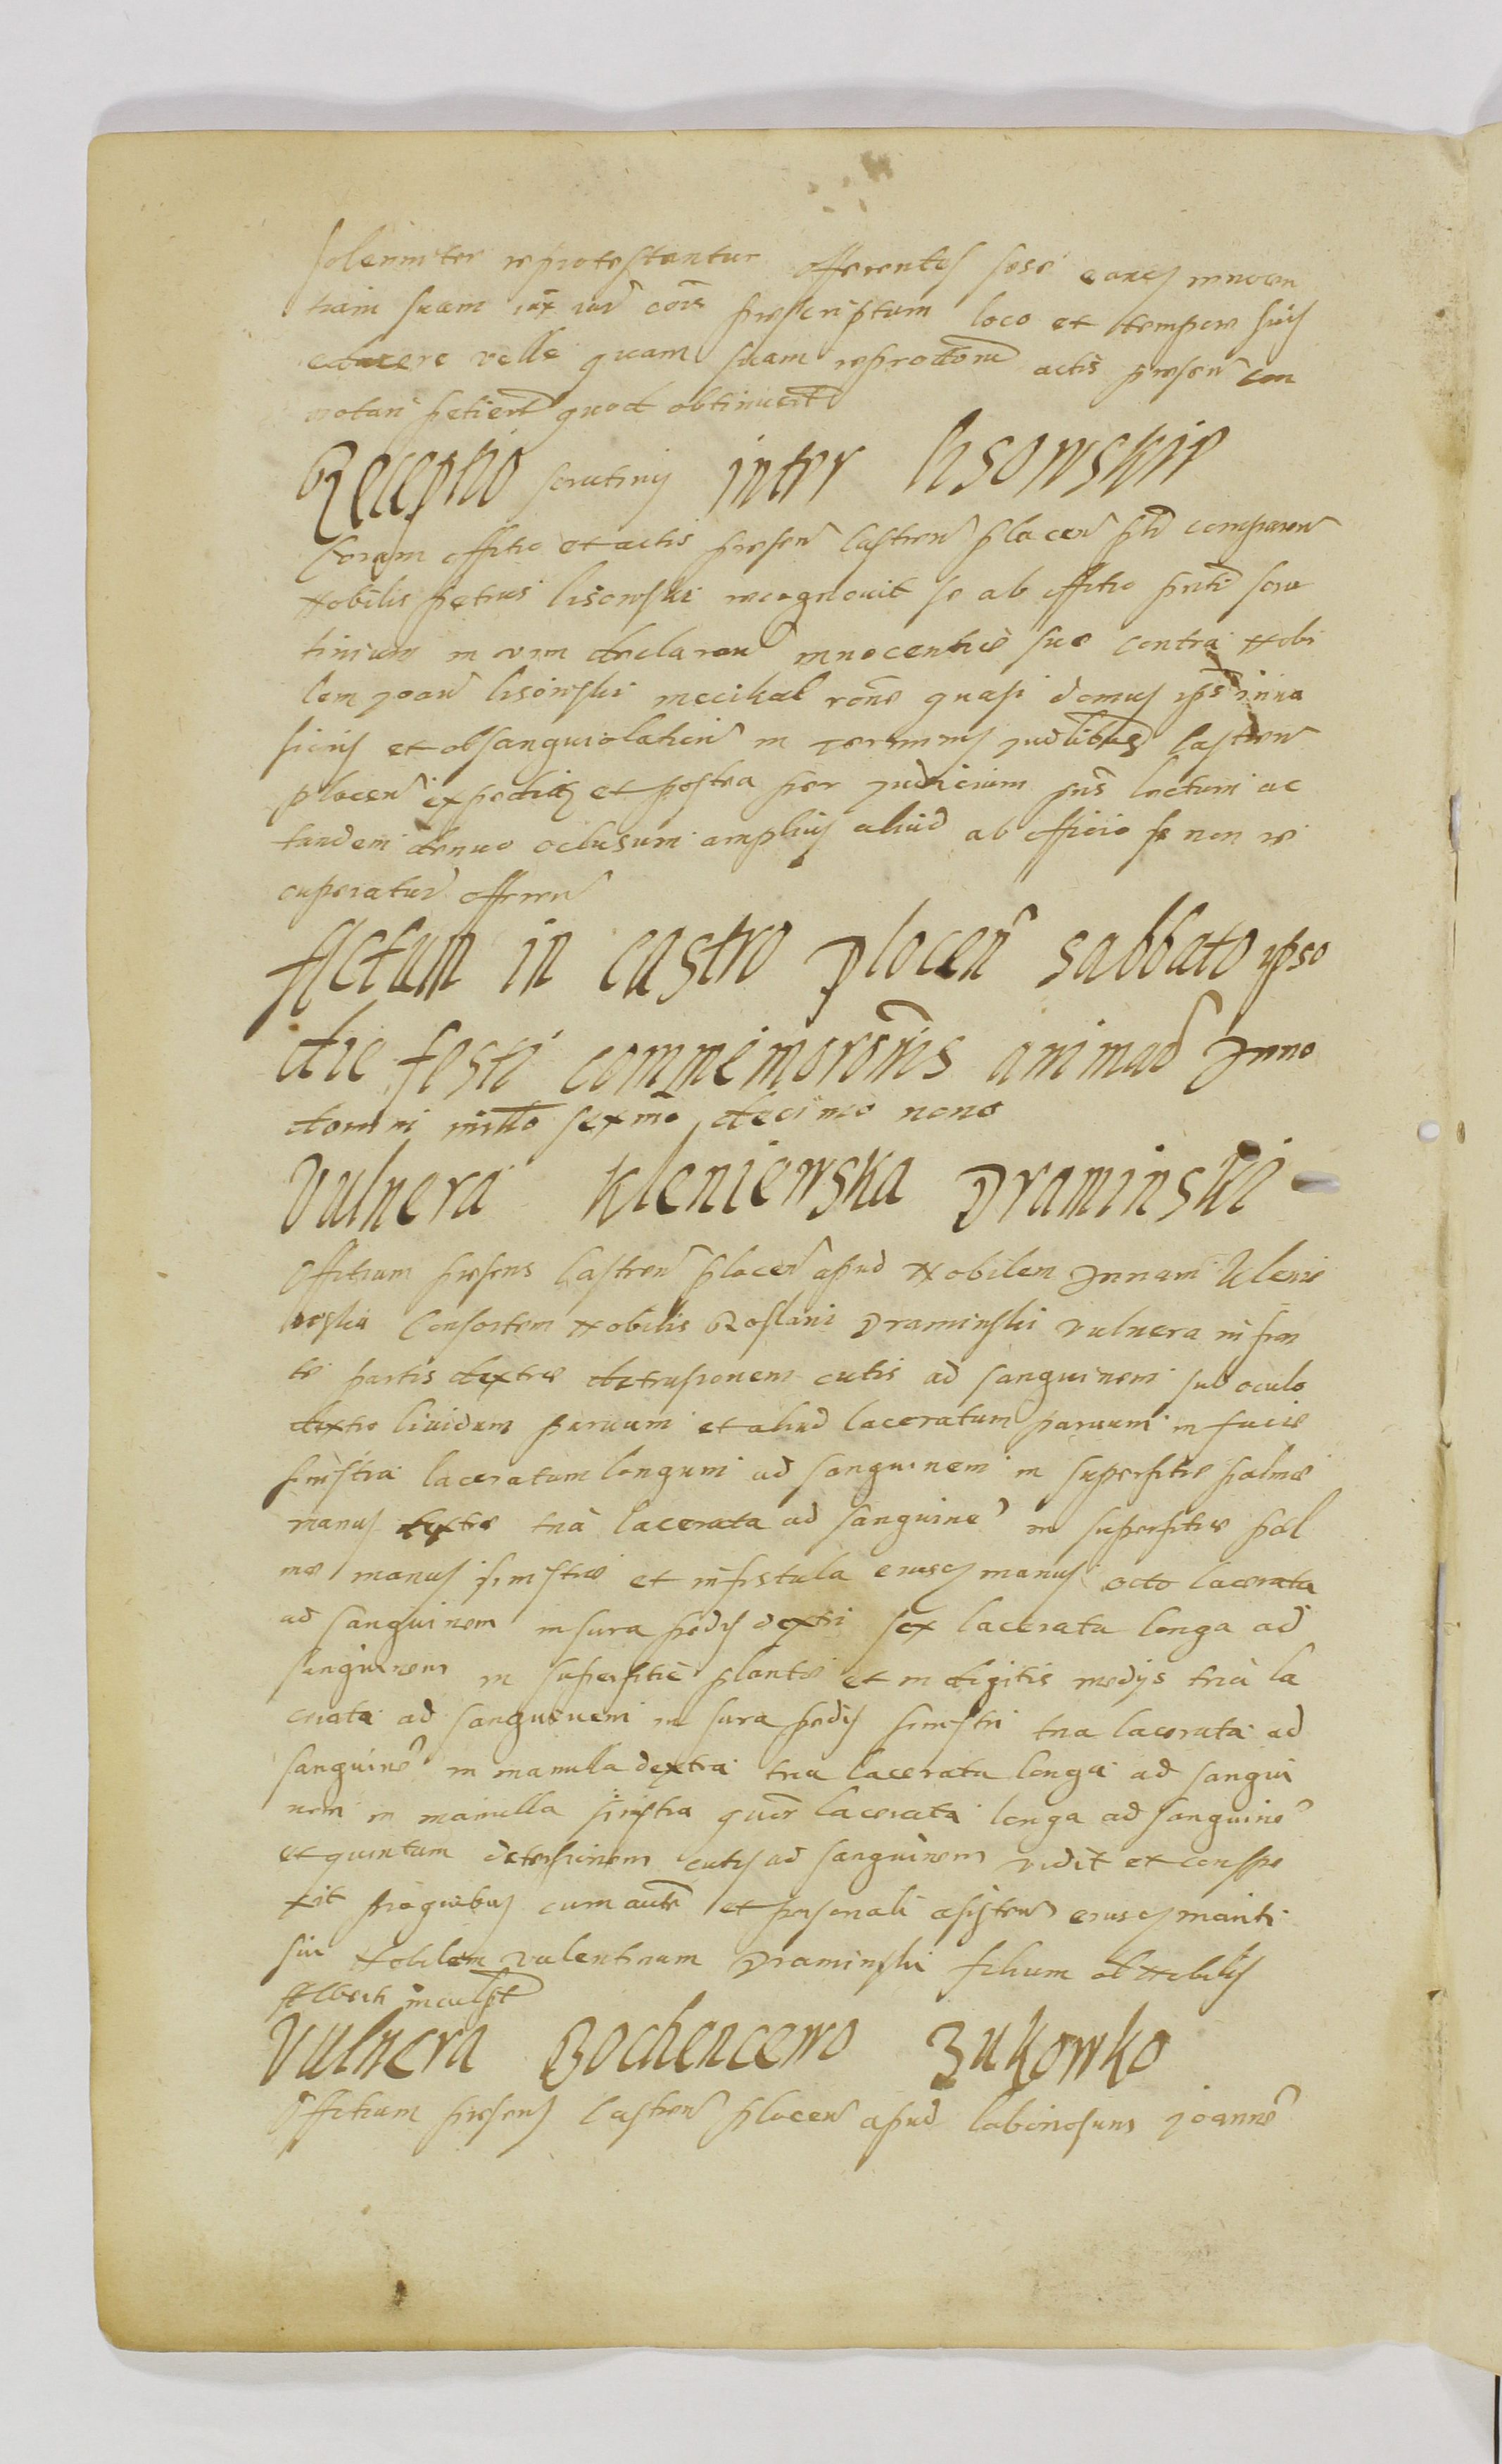 solenniter reprotestantur offerentes sese eamq innocen
tiam suam iux iur cois prescriptum loco et tempore suis
educere velle quam suam reprottone actis presen con
notari petierut quod obtinuerut
Receptio scrutinij inter lisowskie
Coram offitio et actis presen Castren plocen ptr comparen
Nobilis petrus lisowski recognouit se ab offitio pnti scru
tinium in vim declaran innocentie sue contra Nobi
lem Joan lisowski mecikal rone quasi domus ips inua
sionis et obsanguiolation in terminis judlibus Castren
plocen expeditu et postea per judicium pns lectum ac
tandem denuo oclusum amplius aliud ab officio se non re
cuperatur offeren
Actum in castro plocen sabbato ipso
die festi commemorõnis animar Anno
domini millo sexmo decimo nono
Vulnera Kleniewska Draminski
Offitium presens Castren plocen apud Nobilem Annam Klenie
wska Consortem Nobilis Roslani Draminski vulnera in fron
te partis dextre detrusionem cutis ad sanguinem sub oculo
dextro liuidum paruum et aliud laceratum paruum in facie
sinistra laceratum longum ad sanguinem in superfitie palme
manus dextre tria lacerata ad sanguine in superfitie pal
me manus sinistre et in fistula eiusq manus octo lacerata
ad sanguinem in sura pedis dextri sex lacerata longa ad
sanguinem in superfitie plante et in digitis medijs tria la
cerata ad sanguinem in sura pedis sinistri tria lacerata ad
sanguine in mamilla dextra tria lacerata longa ad sangui
nem in mamilla sinistra quor lacerata longa ad sanguine
et quintum detersionem cutis ad sanguinem vidit et conspe
xit pro quibus cum aute et personali asisten eiusq mariti
sui Nobilem valentinum Draminski filium ol Nobilis
Alberti inculpt
Vulnera Bochencewo Zukowko
Offitium presens Castren plocen apud laboriosum joanne